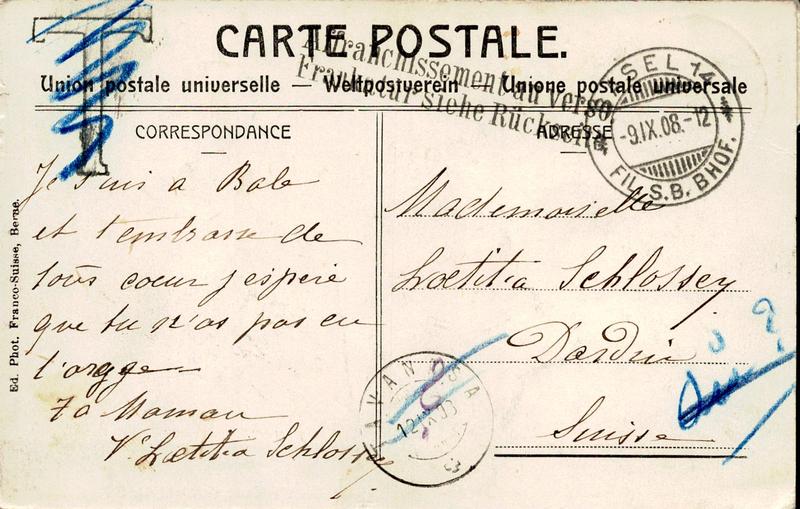 CARTE POSTALE.
Affranchissement au verso.
Frankatur siehe Rückseite
Union postale universelle — Weltpostverein — Unione postale universale
CORRESPONDANCE
ADRESSE
T
SEL 14
-9.IX.08.-12
FIL. S.B. BHOF.
Je suis a Bale
et t'embrasse de
tous coeur j'espere
que tu n'as pas eu
l'orage
Ta Maman
Vᵉ Lœtitia Schlossey
Mademoiselle
Lœtitia Schlossey
Dardin
Suisse
TAVANASA
12.IX.08
Ed. Phot. Franco-Suisse, Berne.